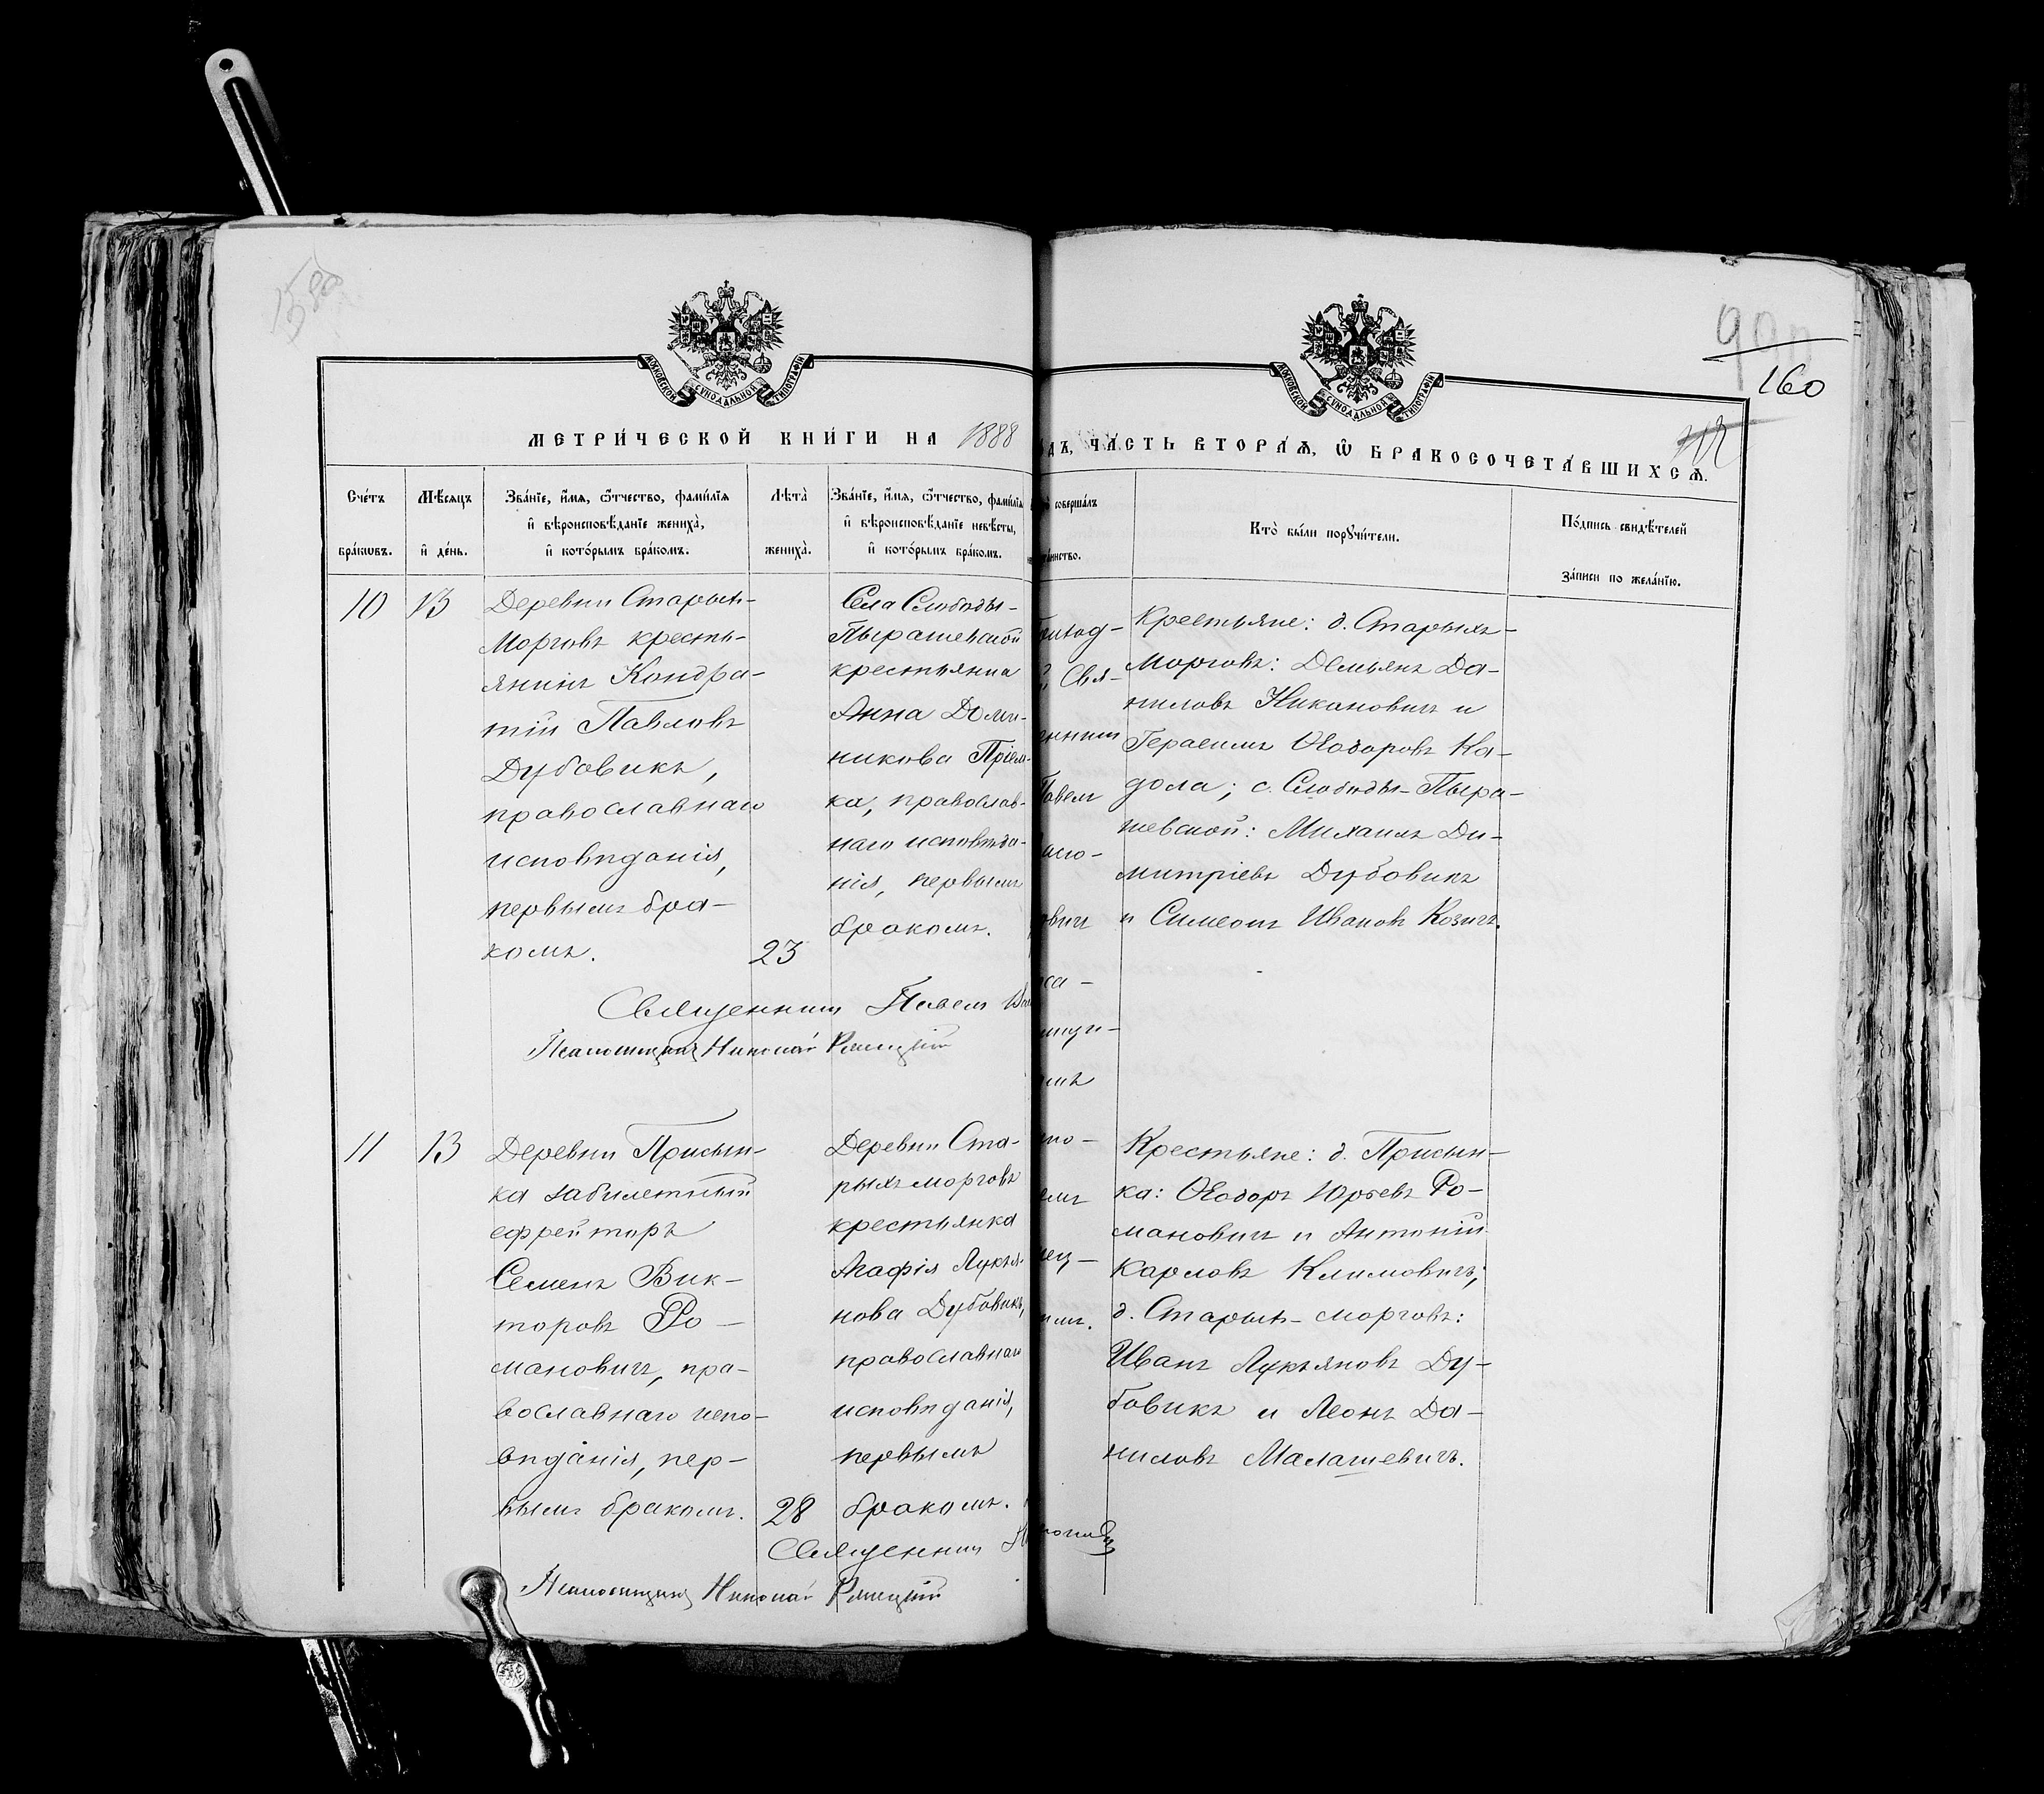 1580
900
160
МОСКОВСКОЙ СѴНОДАЛЬНОЙ ТИПОГРАФІИ
МОСКОВСКОЙ СѴНОДАЛЬНОЙ ТИПОГРАФІИ
МЕТРИ́ЧЕСКОЙ КНИ́ГИ НА 1888
ДЪ, ЧА́СТЬ ВТОРА́Ѧ, Ѡ҆ БРАКОСОЧЕТА́ВШИХСѦ.
Сче́тъ бра́кѡвъ.
Мѣ́сяцъ и҆ де́нь.
Зва́нїе, и҆́мя, ѻ҆́тчество, фами́лїя
и҆ вѣроисповѣ́данїе жениха̀,
и҆ кото́рымъ бра́комъ.
Лѣта̀ жениха̀.
Зва́нїе, и҆́мя, ѻ҆́тчество, фами́лїя
и҆ вѣроисповѣ́данїе невѣ́сты,
и҆ кото́рымъ бра́комъ.
соверша́лъ
та́инство.
Кто̀ бы́ли порꙋчи́тели.
По́дпись свидѣ́телей
за́писи по жела́нїю.
10
13
Деревни Старыхъ-
Морговъ кресть-
янинъ Кондра-
тій Павловъ
Дубовикъ,
православнаго
исповѣданія,
первымъ бра-
комъ.
23
Села Слободы-
Пырашевской
крестьянка
Анна Доми-
никова Пріем-
ка, православ-
наго исповѣда-
нія, первымъ
бракомъ.
Свя-
Павелъ
Крестьяне: д. Старыхъ-
Морговъ: Демьянъ Да-
ниловъ Никановичъ и
Герасимъ Ѳеодоровъ Ка-
дола; с. Слободы-Пыра-
шевской: Михаилъ Ди-
митріевъ Дубовикъ
и Симеонъ Ивановъ Козичъ.
Священникъ Павелъ
Псаломщикъ Николай
11
13
Деревни Присын-
ка забилетный
ефрейторъ
Семенъ Вик-
торовъ Ро-
мановичъ, пра-
вославнаго испо-
вѣданія, пер-
вымъ бракомъ.
28
Деревни Ста-
рыхъ морговъ
крестьянка
Агафія Лукья-
нова Дубовикъ,
православнаго
исповѣданія,
первымъ
бракомъ.
Крестьяне: д. Присын-
ка: Ѳеодоръ Юрьевъ Ро-
мановичъ и Антоній
Карловъ Климовичъ;
д. Старыхъ-морговъ:
Иванъ Лукьяновъ Ду-
бовикъ и Леонъ Да-
ниловъ Малашевичъ.
Священникъ
Псаломщикъ Николай